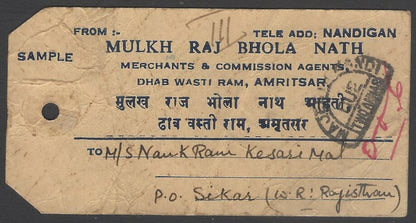 FROM :- TELE ADD: NANDIGAN
SAMPLE
MULKH RAJ BHOLA NATH
MERCHANTS & COMMISSION AGENTS
DHAB WASTI RAM, AMRITSAR
मुलख राज भोला नाथ आढ़ती
ढाब वस्ती राम, अमृतसर
TO M/S Nank Ram Kesari Mal
P.O. Sikar (W.R: Rajisthan)